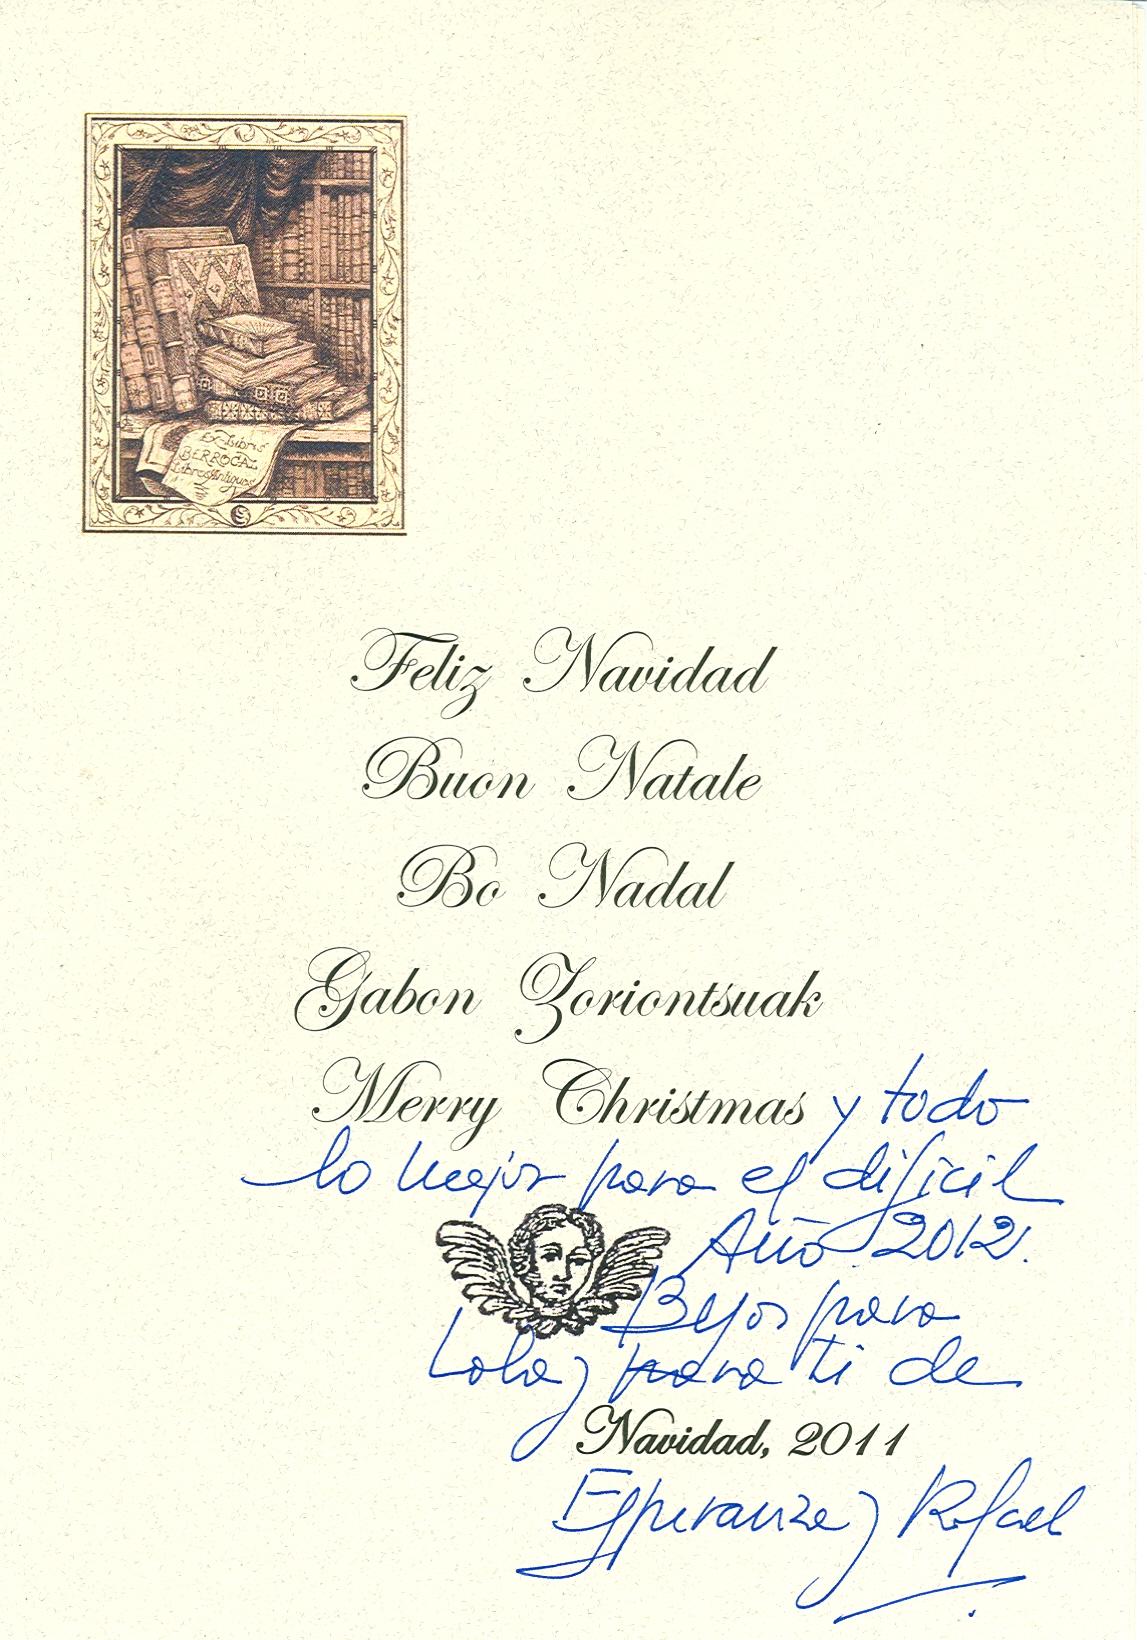 Ex-Libris
BERROCAL
Libros Antiguos
Feliz Navidad
Buon Natale
Bo Nadal
Gabon Zoriontsuak
Merry Christmas y todo
lo mejor para el dificil
Año 2012.
Besos para
Lola y para ti de
Navidad, 2011
Esperanza y Rafael